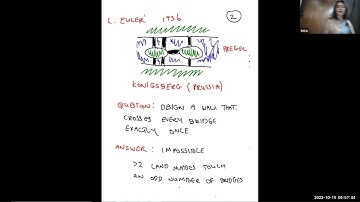 L. EULER 1736
2
PREGEL
KONIGSBERG (PRUSSIA)
QUESTION: DESIGN A WALK THAT
CROSSES EVERY BRIDGE
EXACTLY ONCE
ANSWER: IMPOSSIBLE
>2 LAND MASSES TOUCH
AN ODD NUMBER OF BRIDGES